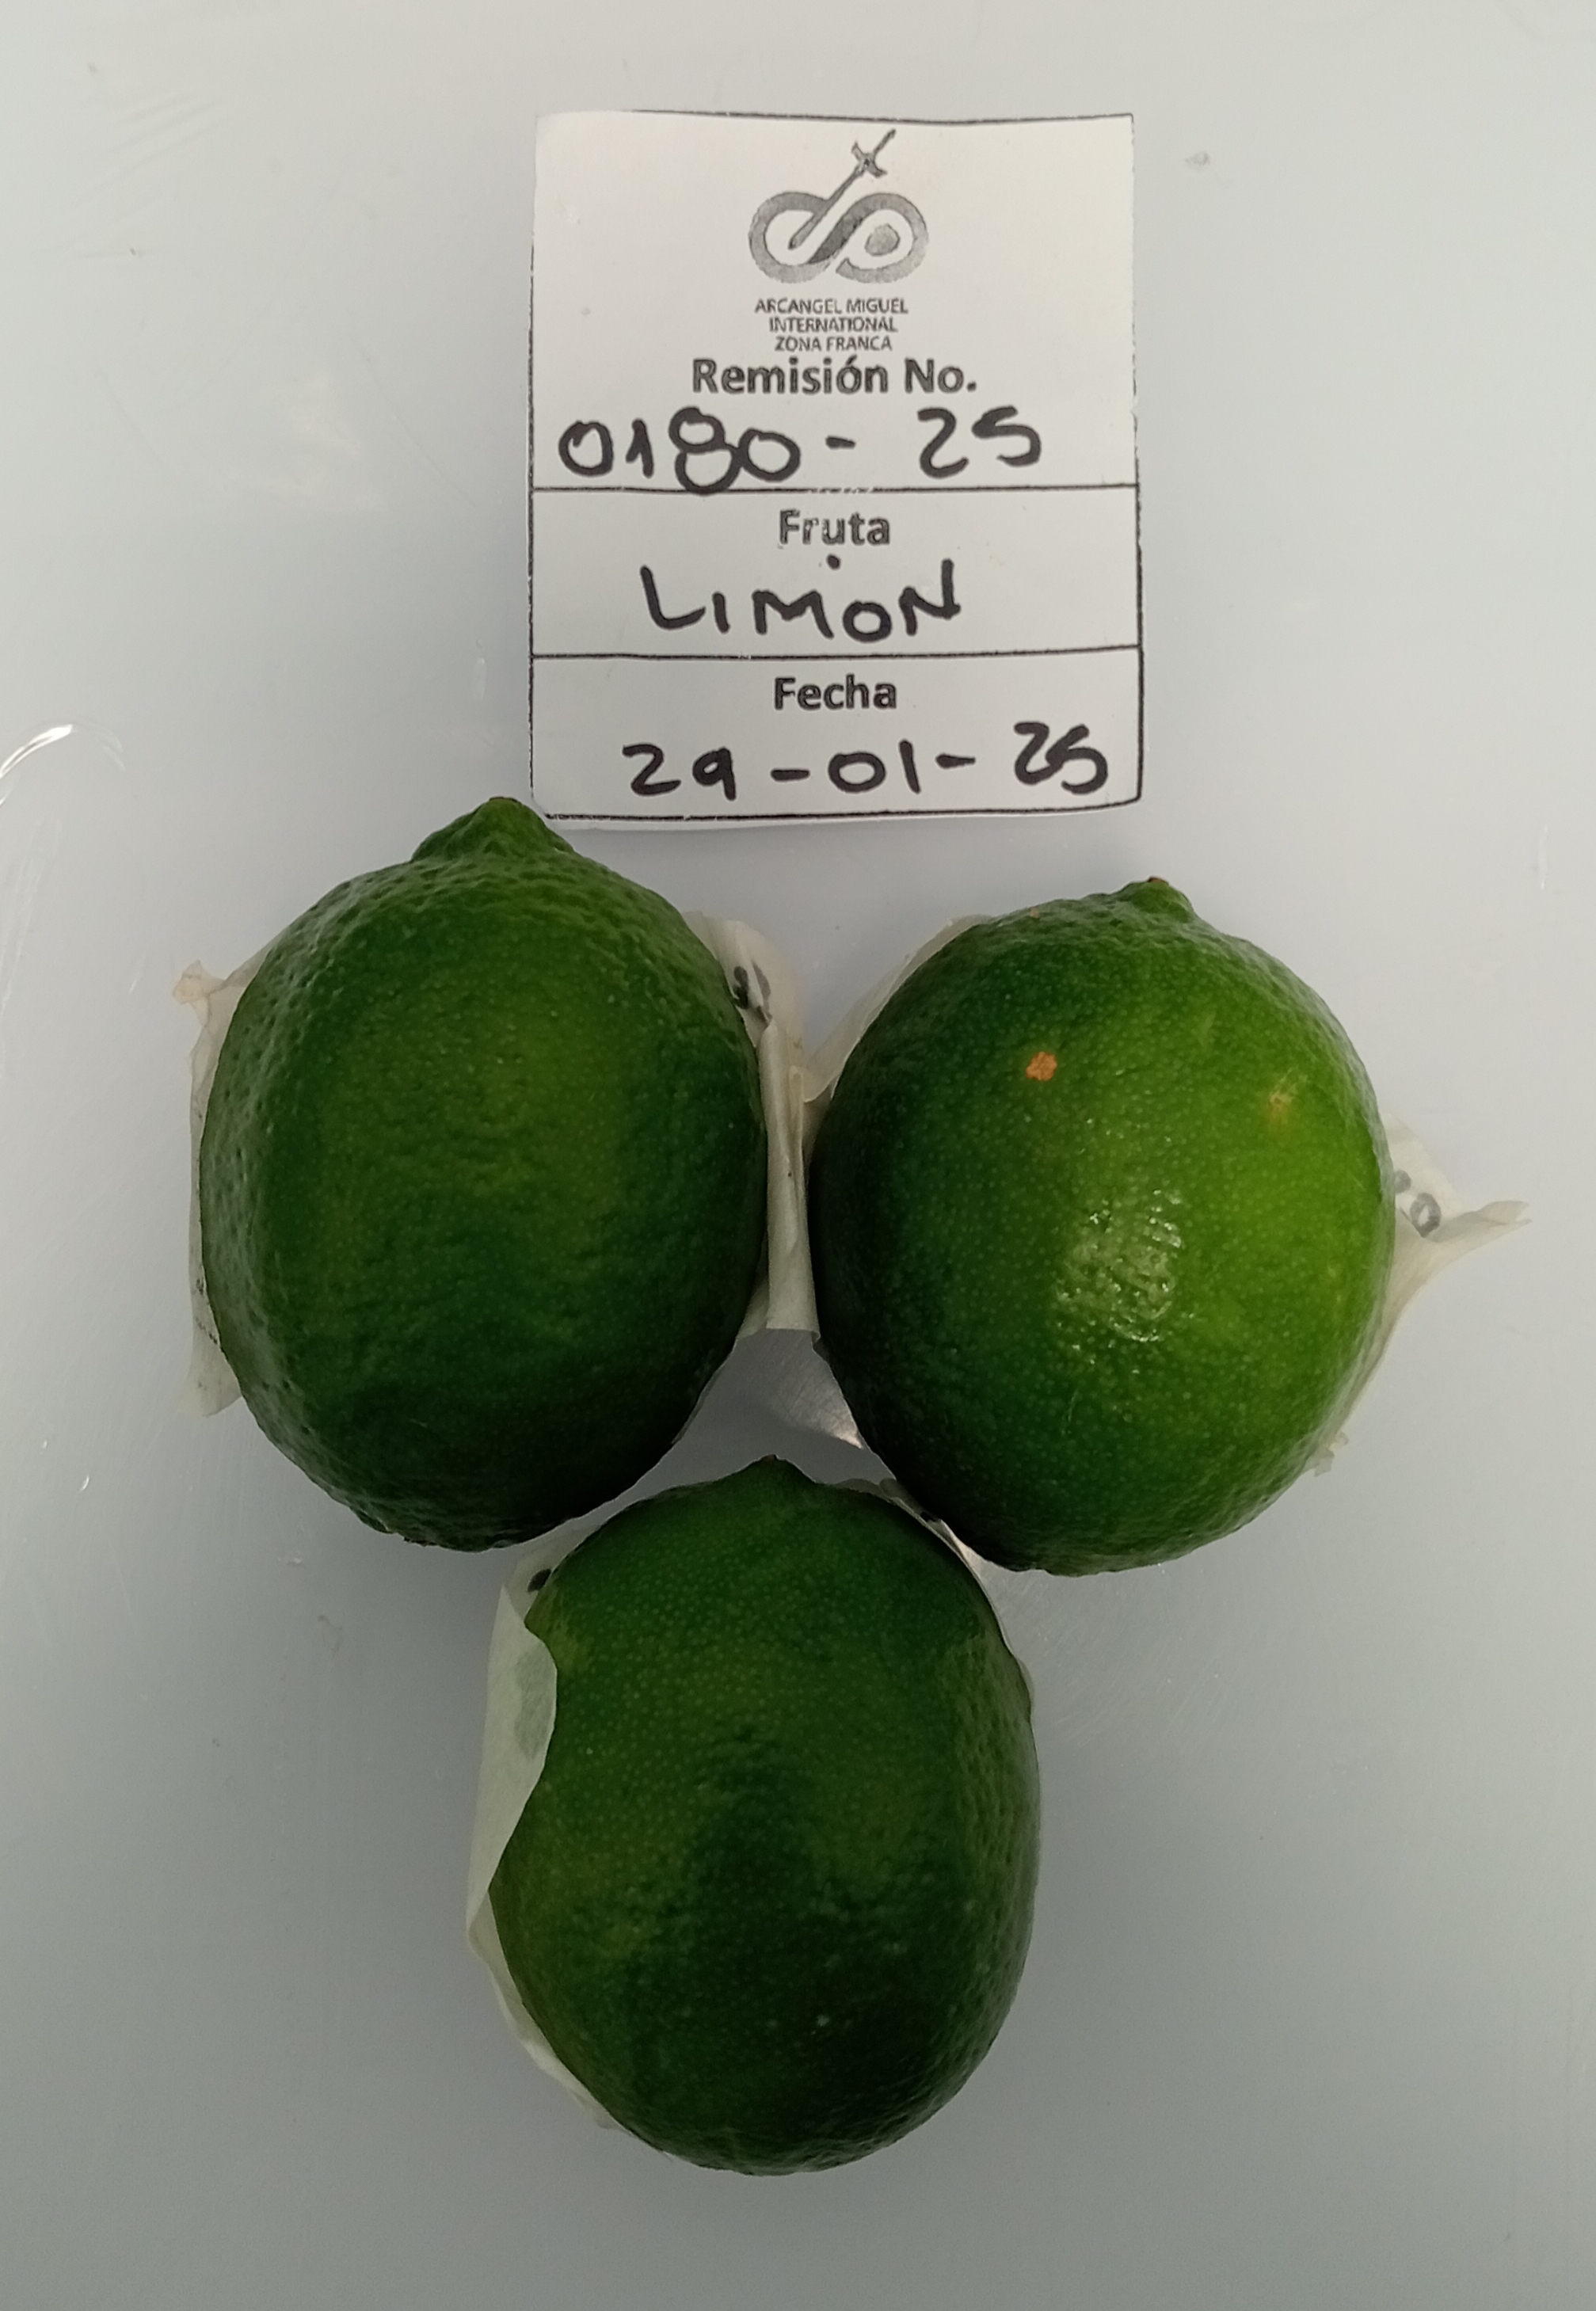 ARCANGEL MIGUEL
INTERNATIONAL
ZONA FRANCA
Remisión No.
0180 - 25
Fruta
LIMON
Fecha
29 - 01 - 25